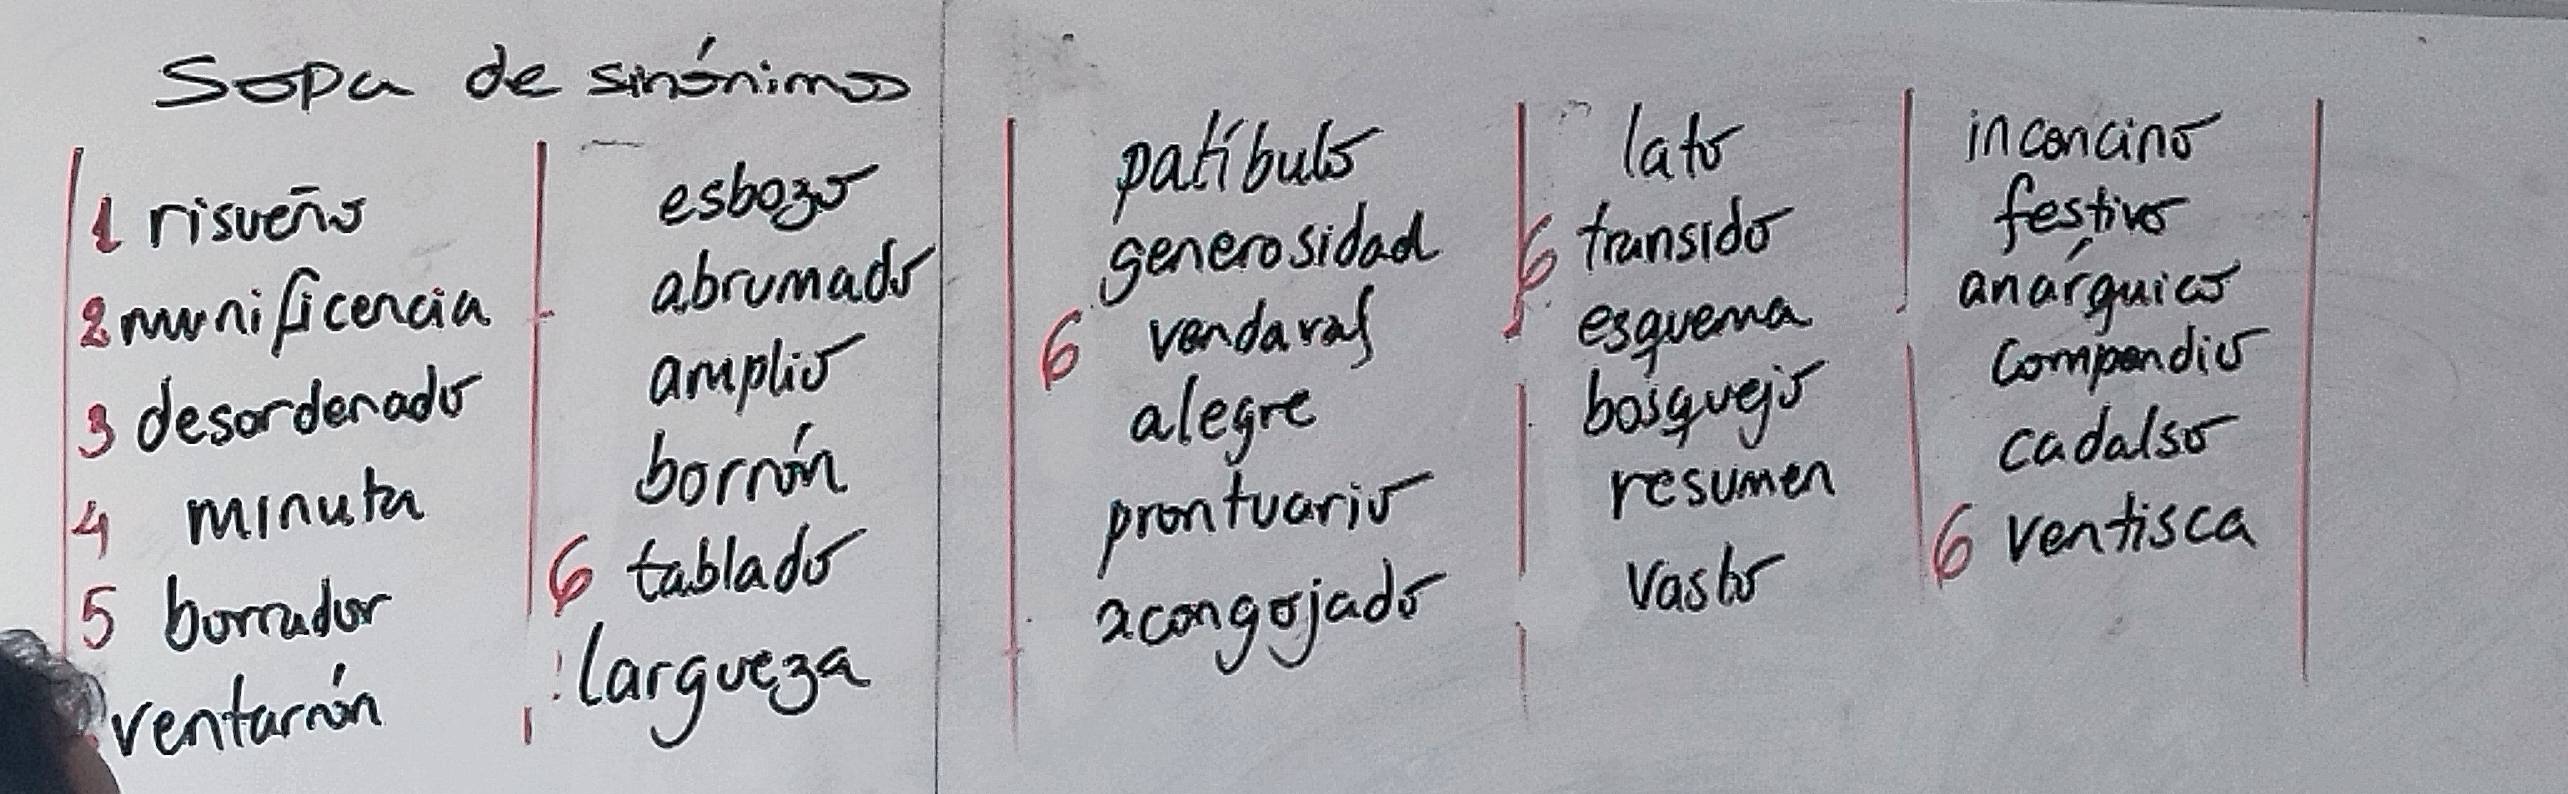 Sopa de sinónimos
1 risueño
2 munificencia
3 desordenado
4 minuta
5 borrador
ventarrón
esbozo
abrumado
amplio
borrón
6 tablado
largueza
patíbulo
generosidad
6 vendaval
alegre
prontuario
acongojado
lato
6 transido
esquema
bosquejo
resumen
vasto
inconcino
festivo
anárquico
compendio
cadalso
6 ventisca